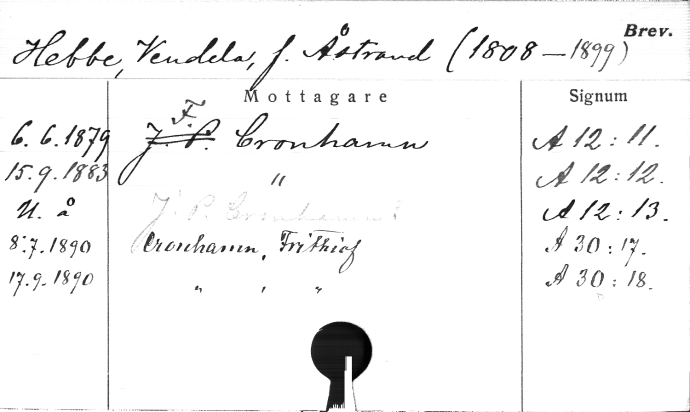 Brev.
Hebbe, Vendela, f. Åstrand (1808–1899)
Mottagare Signum
F.
6. 6. 1879 J. P. Cronhamn A 12 : 11.
15. 9. 1883 " A 12 : 12.
U. å J. P. Cronhamn? A 12 : 13.
8. 7. 1890 Cronhamn, Frithiof A 30 : 17.
17. 9. 1890 " , " A 30 : 18.